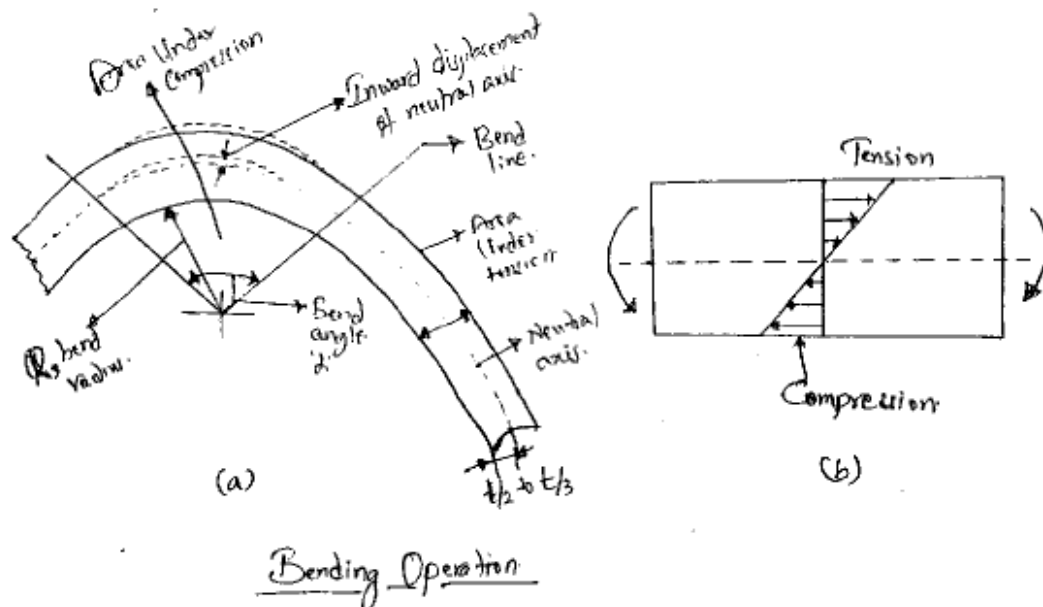 Area Under
Compression
Inward displacement
of neutral axis.
Bend
line.
Area
Under
tension
Neutral
axis.
Bend
angle
α
R, bend
radius.
t/2 to t/3
(a)
Tension
Compression
(b)
Bending Operation